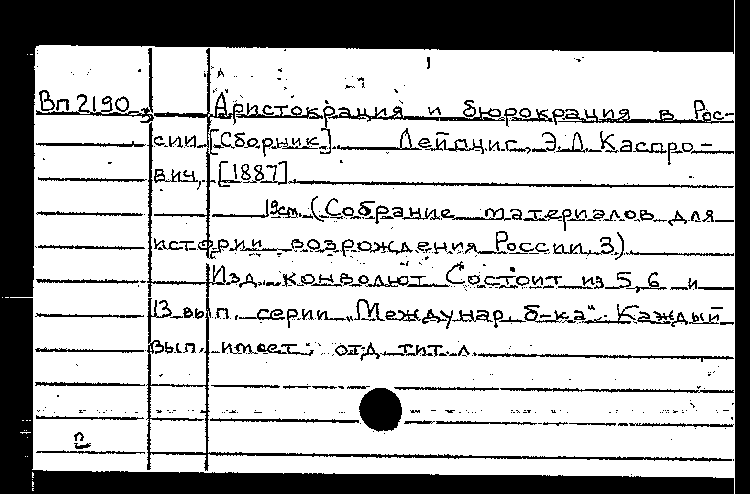 Вп 2190 3 Аристокрация и бюрокрация в Рос-
сии [Сборник] Лейпциг, Э. Л. Каспро-
вич, [1887].
19см. (Собрание материалов для
истории возрождения России, 3).
Изд. конволют Состоит из 5, 6 и
13 вып. серии „Междунар. б-ка". Каждый
вып. имеет отд. тит. л.